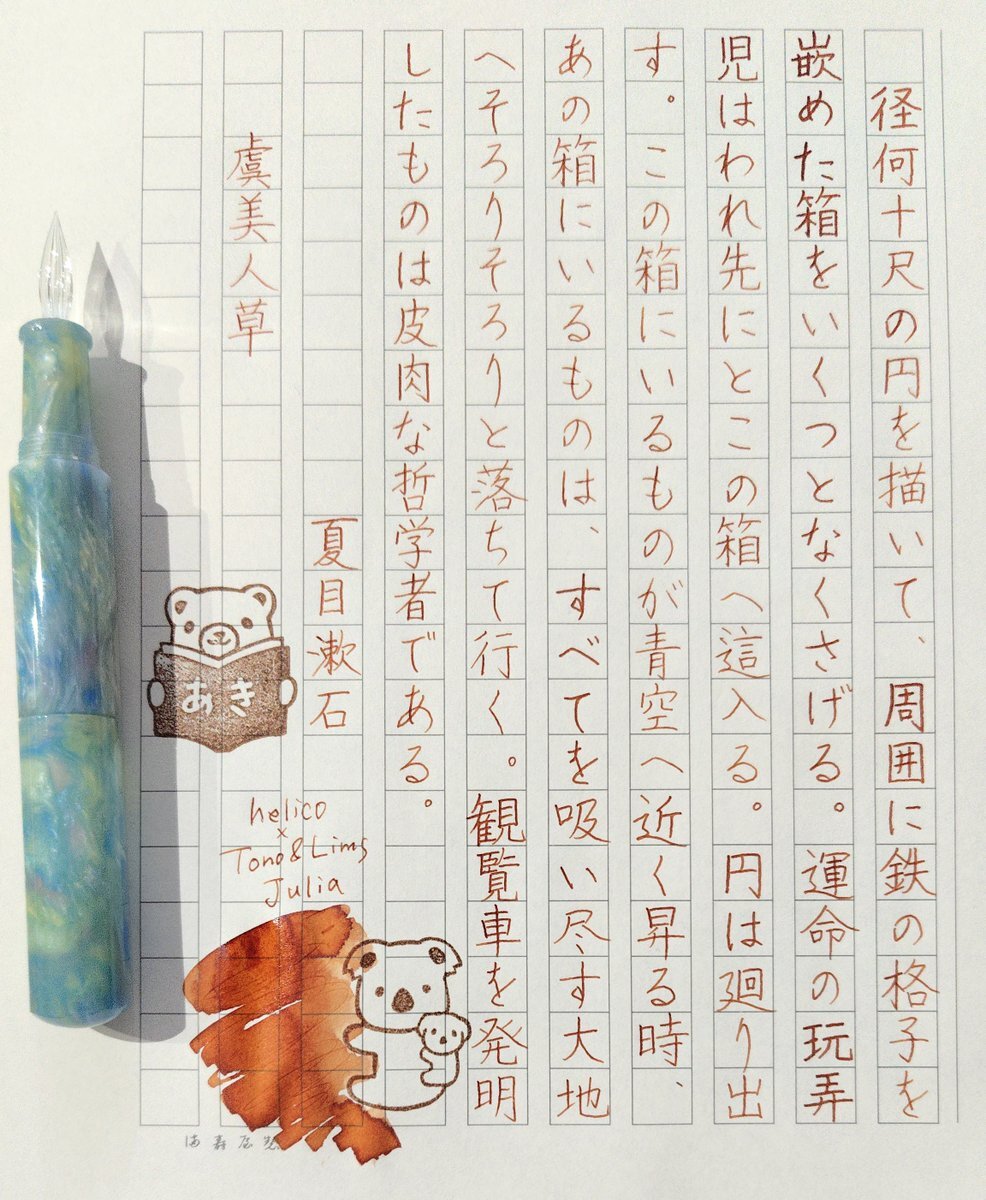 径何十尺の円を描いて、周囲に鉄の格子を
嵌めた箱をいくつとなくさげる。運命の玩弄
児はわれ先にとこの箱へ這入る。円は廻り出
す。この箱にいるものが青空へ近く昇る時、
あの箱にいるものは、すべてを吸い尽す大地
へそろりそろりと落ちて行く。観覧車を発明
したものは皮肉な哲学者である。
夏目漱石
虞美人草
あき
helico
×
Tono&Lims
Julia
満寿屋製